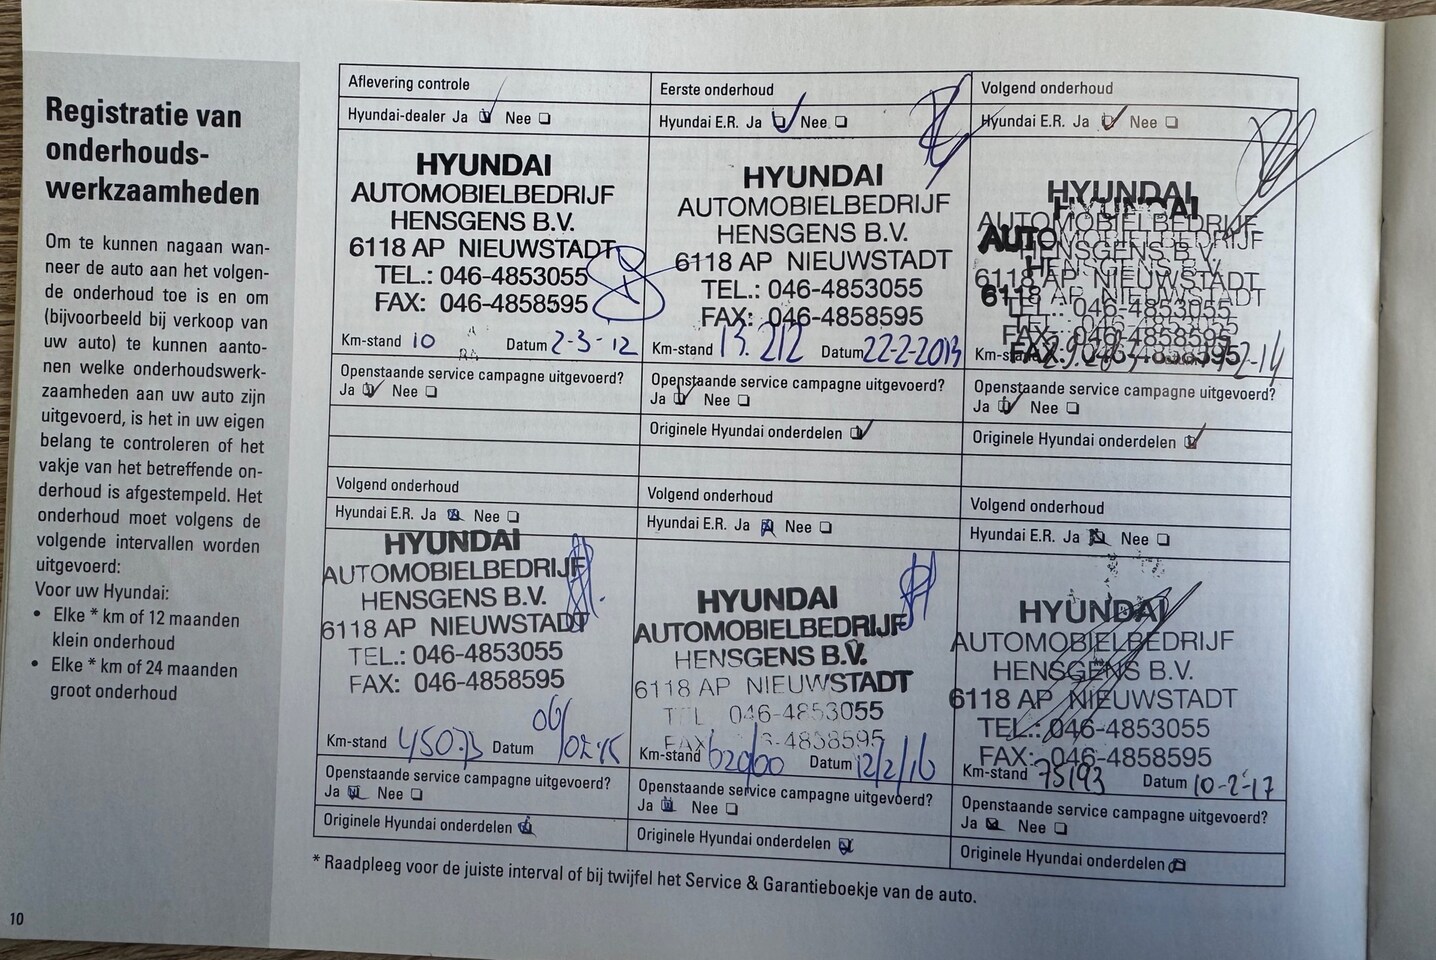 Registratie van
onderhouds-
werkzaamheden
Om te kunnen nagaan wan-
neer de auto aan het volgen-
de onderhoud toe is en om
(bijvoorbeeld bij verkoop van
uw auto) te kunnen aanto-
nen welke onderhoudswerk-
zaamheden aan uw auto zijn
uitgevoerd, is het in uw eigen
belang te controleren of het
vakje van het betreffende on-
derhoud is afgestempeld. Het
onderhoud moet volgens de
volgende intervallen worden
uitgevoerd:
Voor uw Hyundai:
• Elke * km of 12 maanden
klein onderhoud
• Elke * km of 24 maanden
groot onderhoud
10
Aflevering controle
Hyundai-dealer Ja Nee
HYUNDAI
AUTOMOBIELBEDRIJF
HENSGENS B.V.
6118 AP NIEUWSTADT
TEL.: 046-4853055
FAX: 046-4858595
Km-stand 10 Datum 2-3-12
Openstaande service campagne uitgevoerd?
Ja Nee
Eerste onderhoud
Hyundai E.R. Ja Nee
HYUNDAI
AUTOMOBIELBEDRIJF
HENSGENS B.V.
6118 AP NIEUWSTADT
TEL.: 046-4853055
FAX: 046-4858595
Km-stand 13.212 Datum 22-2-2013
Openstaande service campagne uitgevoerd?
Ja Nee
Originele Hyundai onderdelen
Volgend onderhoud
Hyundai E.R. Ja Nee
HYUNDAI
AUTOMOBIELBEDRIJF
HENSGENS B.V.
6118 AP NIEUWSTADT
TEL.: 046-4853055
FAX: 046-4858595
Km-stand
Openstaande service campagne uitgevoerd?
Ja Nee
Originele Hyundai onderdelen
Volgend onderhoud
Hyundai E.R. Ja Nee
HYUNDAI
AUTOMOBIELBEDRIJF
HENSGENS B.V.
6118 AP NIEUWSTADT
TEL.: 046-4853055
FAX: 046-4858595
Km-stand 45073 Datum 06/02-15
Openstaande service campagne uitgevoerd?
Ja Nee
Originele Hyundai onderdelen
Volgend onderhoud
Hyundai E.R. Ja Nee
HYUNDAI
AUTOMOBIELBEDRIJF
HENSGENS B.V.
6118 AP NIEUWSTADT
TEL 046-4853055
FAX 046-4858595
Km-stand Datum 12/2/16
Openstaande service campagne uitgevoerd?
Ja Nee
Originele Hyundai onderdelen
Volgend onderhoud
Hyundai E.R. Ja Nee
HYUNDAI
AUTOMOBIELBEDRIJF
HENSGENS B.V.
6118 AP NIEUWSTADT
TEL.: 046-4853055
FAX: 046-4858595
Km-stand 75193 Datum 10-2-17
Openstaande service campagne uitgevoerd?
Ja Nee
Originele Hyundai onderdelen
* Raadpleeg voor de juiste interval of bij twijfel het Service & Garantieboekje van de auto.